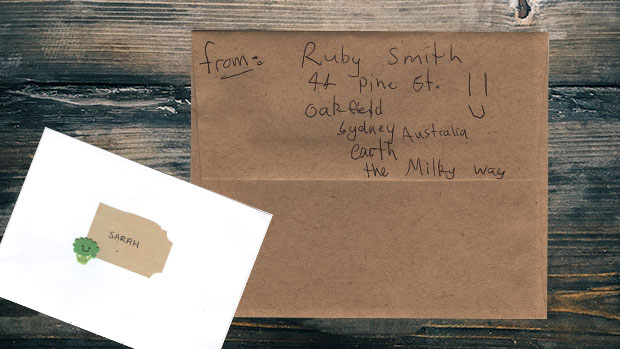 from: Ruby Smith
44 Pine St.
Oakfield
Sydney Australia
earth
the Milky Way
SARAH